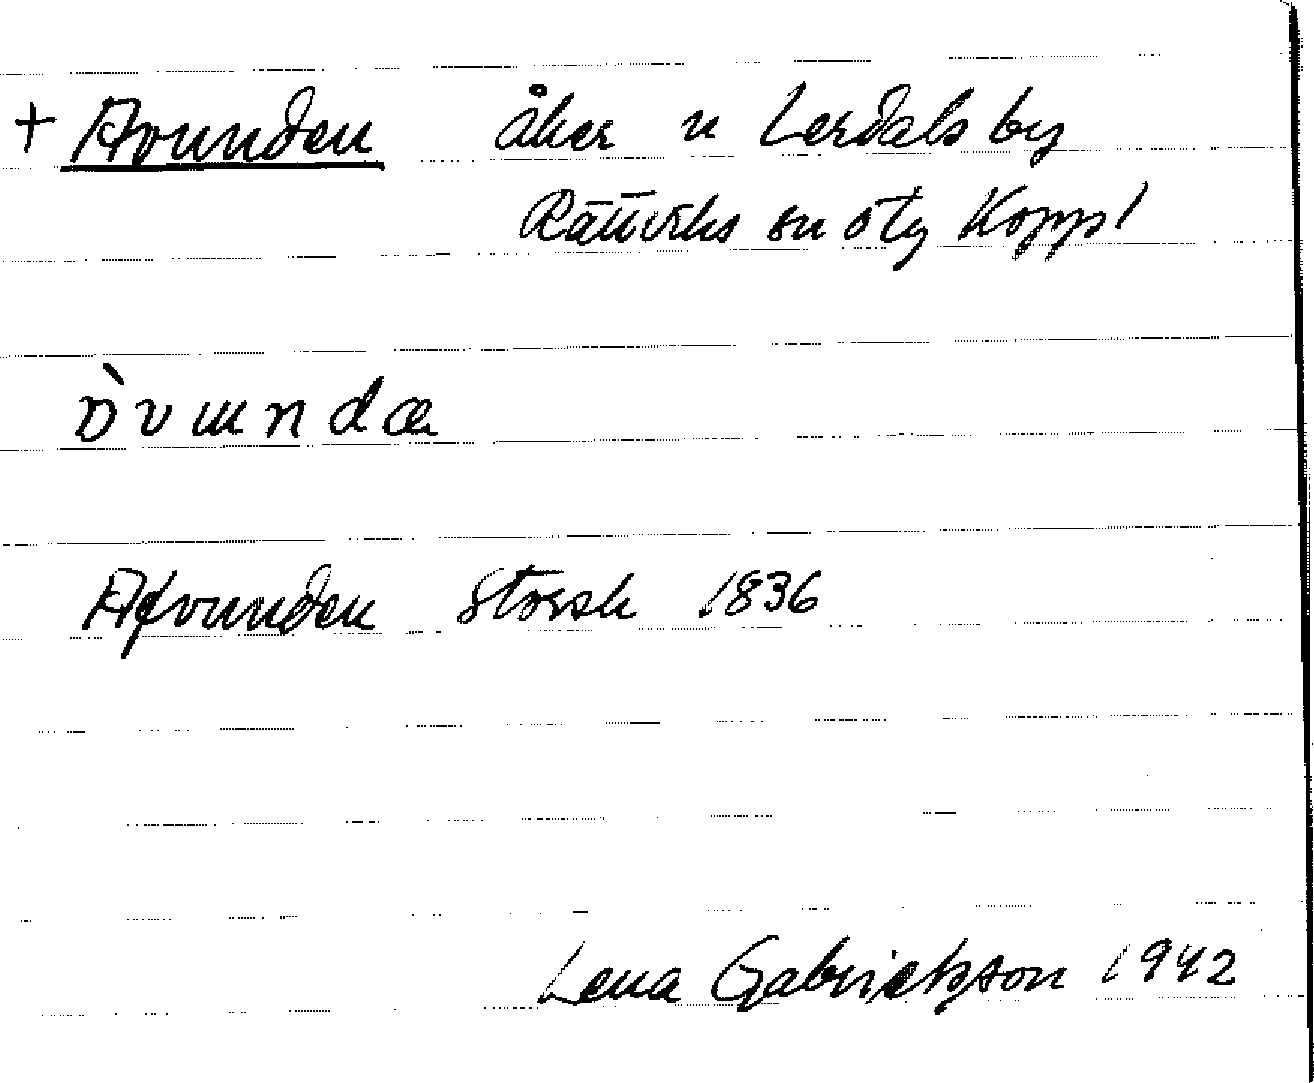 + Avunden åker u Lerdals by
Rättviks sn o tg Koppl
Afvunden Storsk 1836
Lena Gabrielsson 1942